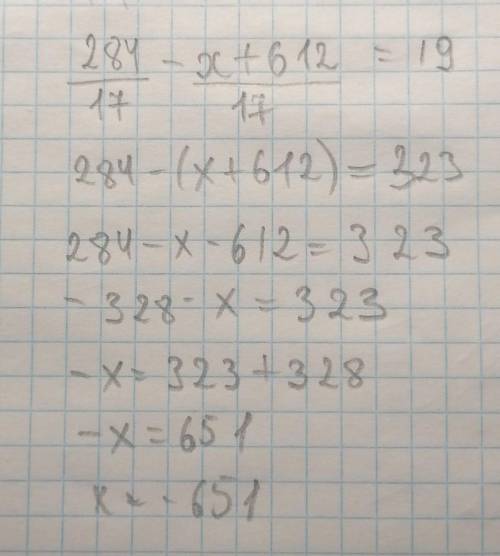 284/17 - x+612/17 = 19
284-(x+612)=323
284-x-612=323
-328-x=323
-x=323+328
-x=651
x=-651